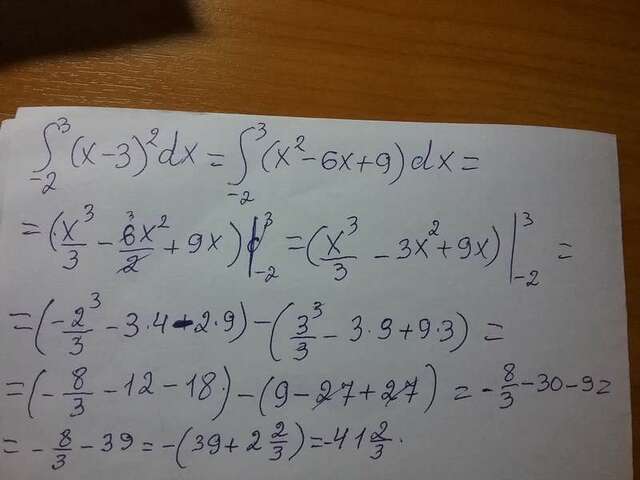 ∫₋₂³ (x-3)² dx = ∫₋₂³ (x² - 6x + 9) dx =
= (x³/3 - 6x²/2 + 9x) |₋₂³ = (x³/3 - 3x² + 9x) |₋₂³ =
= (-2³/3 - 3·4 - 2·9) - (3³/3 - 3·9 + 9·3) =
= (-8/3 - 12 - 18) - (9 - 27 + 27) = -8/3 - 30 - 9 =
= -8/3 - 39 = -(39 + 2 2/3) = -41 2/3.